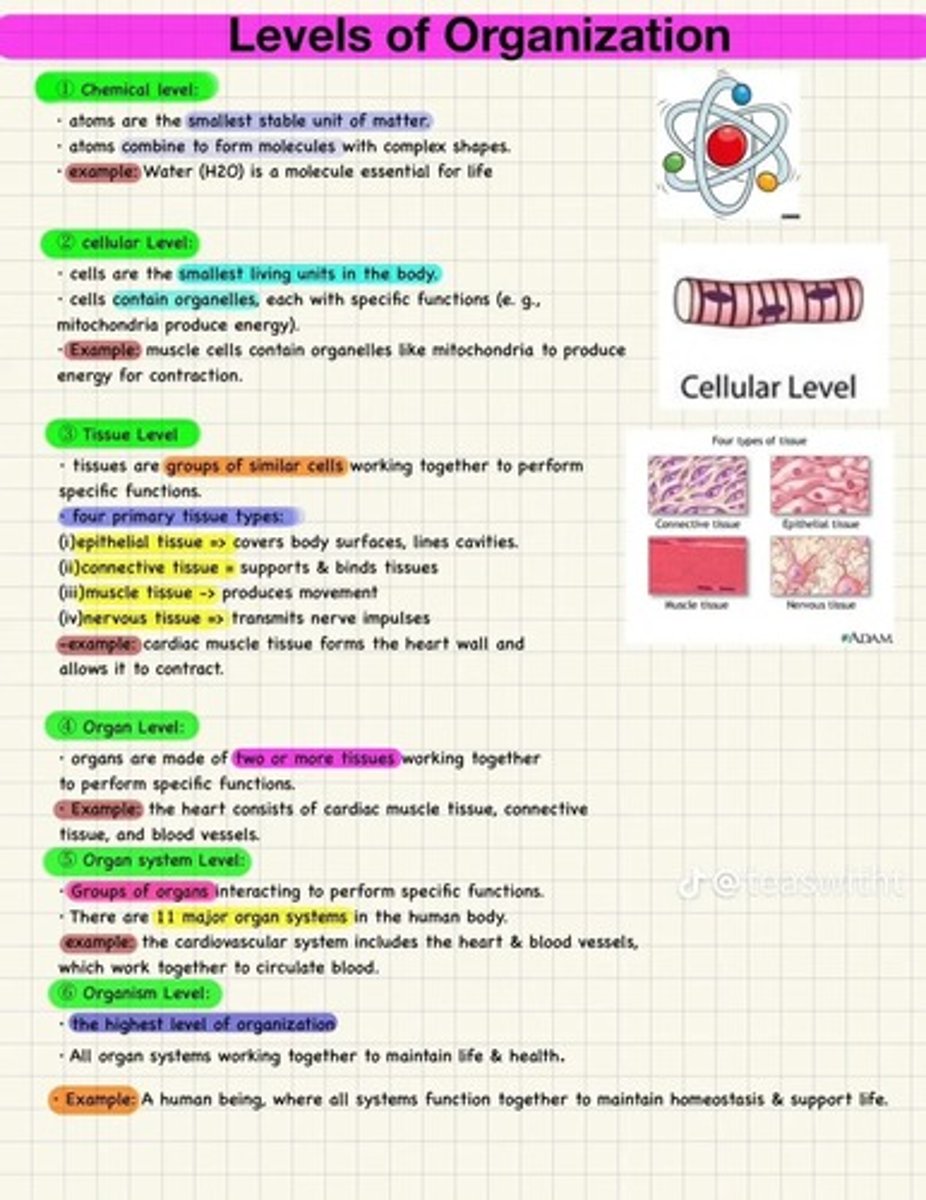 Levels of Organization
① Chemical level:
· atoms are the smallest stable unit of matter.
· atoms combine to form molecules with complex shapes.
· example: Water (H2O) is a molecule essential for life
② cellular Level:
· cells are the smallest living units in the body.
· cells contain organelles, each with specific functions (e. g.,
mitochondria produce energy).
· Example: muscle cells contain organelles like mitochondria to produce
energy for contraction.
Cellular Level
③ Tissue Level
· tissues are groups of similar cells working together to perform
specific functions.
· four primary tissue types:
(i)epithelial tissue => covers body surfaces, lines cavities.
(ii)connective tissue = supports & binds tissues
(iii)muscle tissue -> produces movement
(iv)nervous tissue => transmits nerve impulses
-example: cardiac muscle tissue forms the heart wall and
allows it to contract.
Four types of tissue
Connective tissue
Epithelial tissue
Muscle tissue
Nervous tissue
ADAM
④ Organ Level:
· organs are made of two or more tissues working together
to perform specific functions.
· Example: the heart consists of cardiac muscle tissue, connective
tissue, and blood vessels.
⑤ Organ system Level:
· Groups of organs interacting to perform specific functions.
· There are 11 major organ systems in the human body.
example: the cardiovascular system includes the heart & blood vessels,
which work together to circulate blood.
⑥ Organism Level:
· the highest level of organization
· All organ systems working together to maintain life & health.
· Example: A human being, where all systems function together to maintain homeostasis & support life.